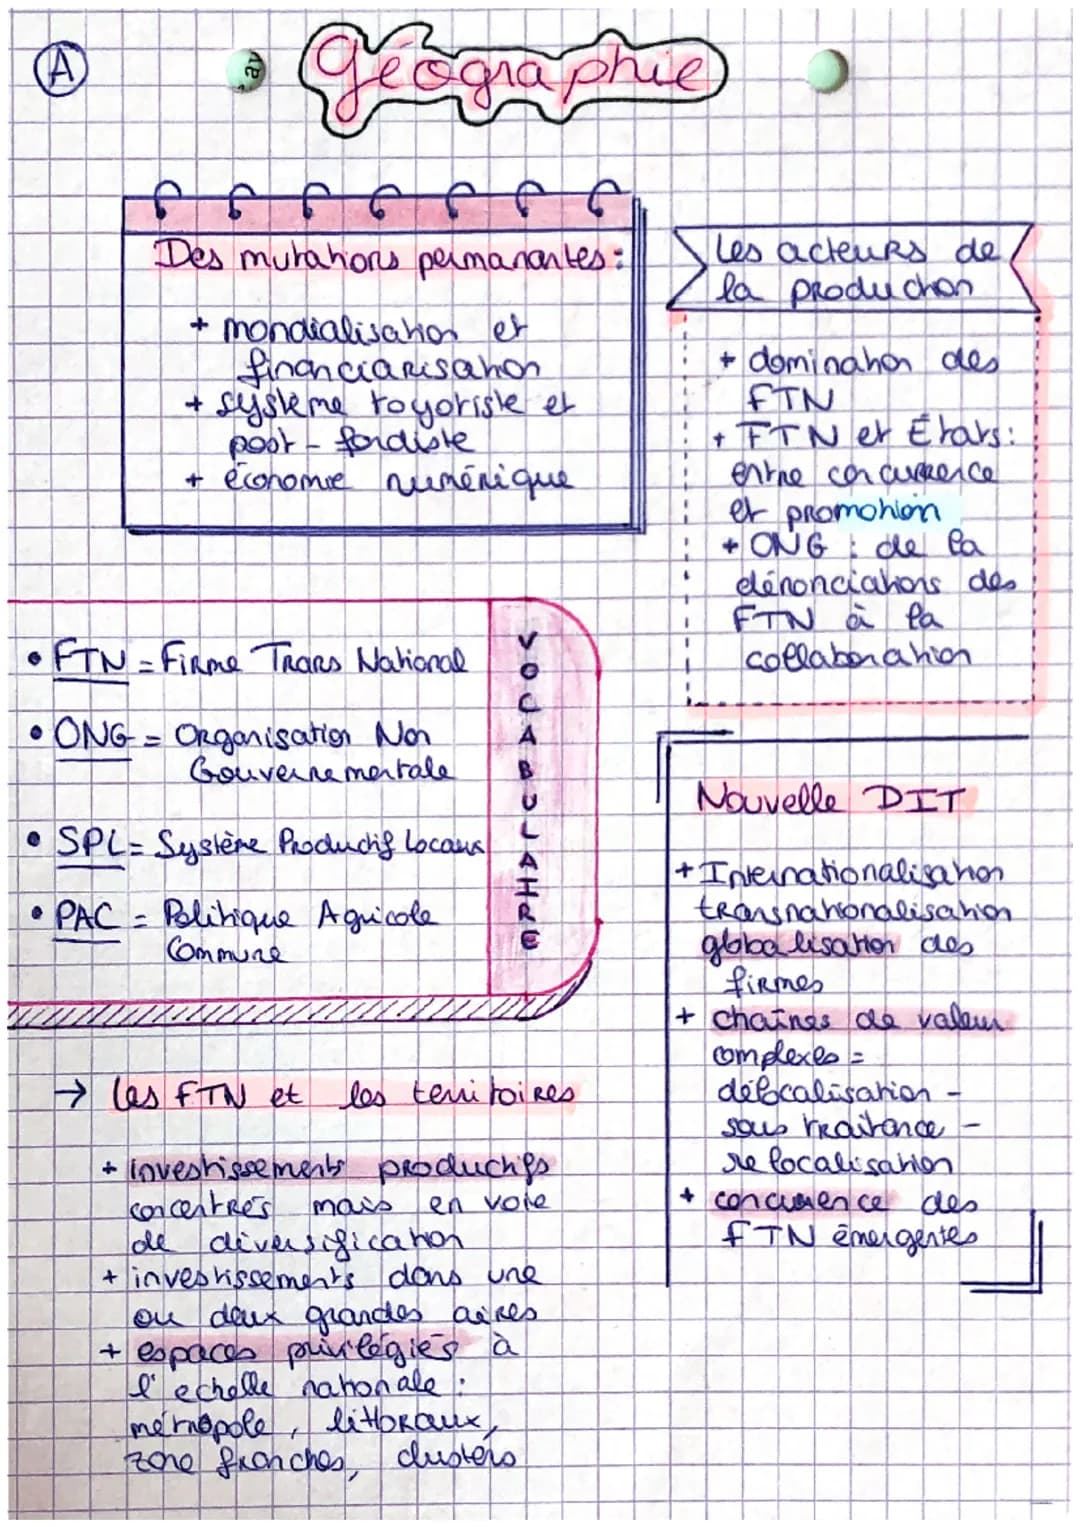 A
Géographie
Des mutations permanantes :
+ mondialisation et
financiarisation
+ système toyotiste et
post-fordiste
+ économie numérique
Les acteurs de
la production
+ domination des
FTN
+ FTN et États :
entre concurrence
et promotion
+ ONG : de la
dénonciations des
FTN à la
collaboration
• FTN = Firme Trans National
• ONG = Organisation Non
Gouvernementale
• SPL = Système Productif Locaux
• PAC = Politique Agricole
Commune
VOCABULAIRE
Nouvelle DIT
+ Internationalisation
transnationalisation
globalisation des
firmes
+ chaînes de valeur
complexes =
délocalisation -
sous traitance -
relocalisation
+ concurrence des
FTN émergentes
→ les FTN et les territoires
+ investissements productifs
concentrés mais en voie
de diversification
+ investissements dans une
ou deux grandes aires
+ espaces privilégiés à
l'echelle nationale :
métropole, littoraux,
zone franches, clusters